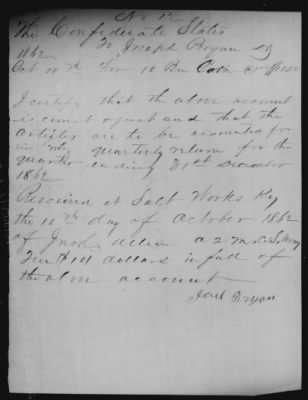 No 12
The Confederate States
To Joseph Bryan Dr
1862
Oct 10th For 10 Bu
I certify that the above account
is correct & just and that the
articles are to be accounted for
in my quarterly return for the
quarter ending 31st December
1862
Received at Salt Works Ky
the 10th day of October 1862
of
Ten dollars in full of
the above account
Bryan